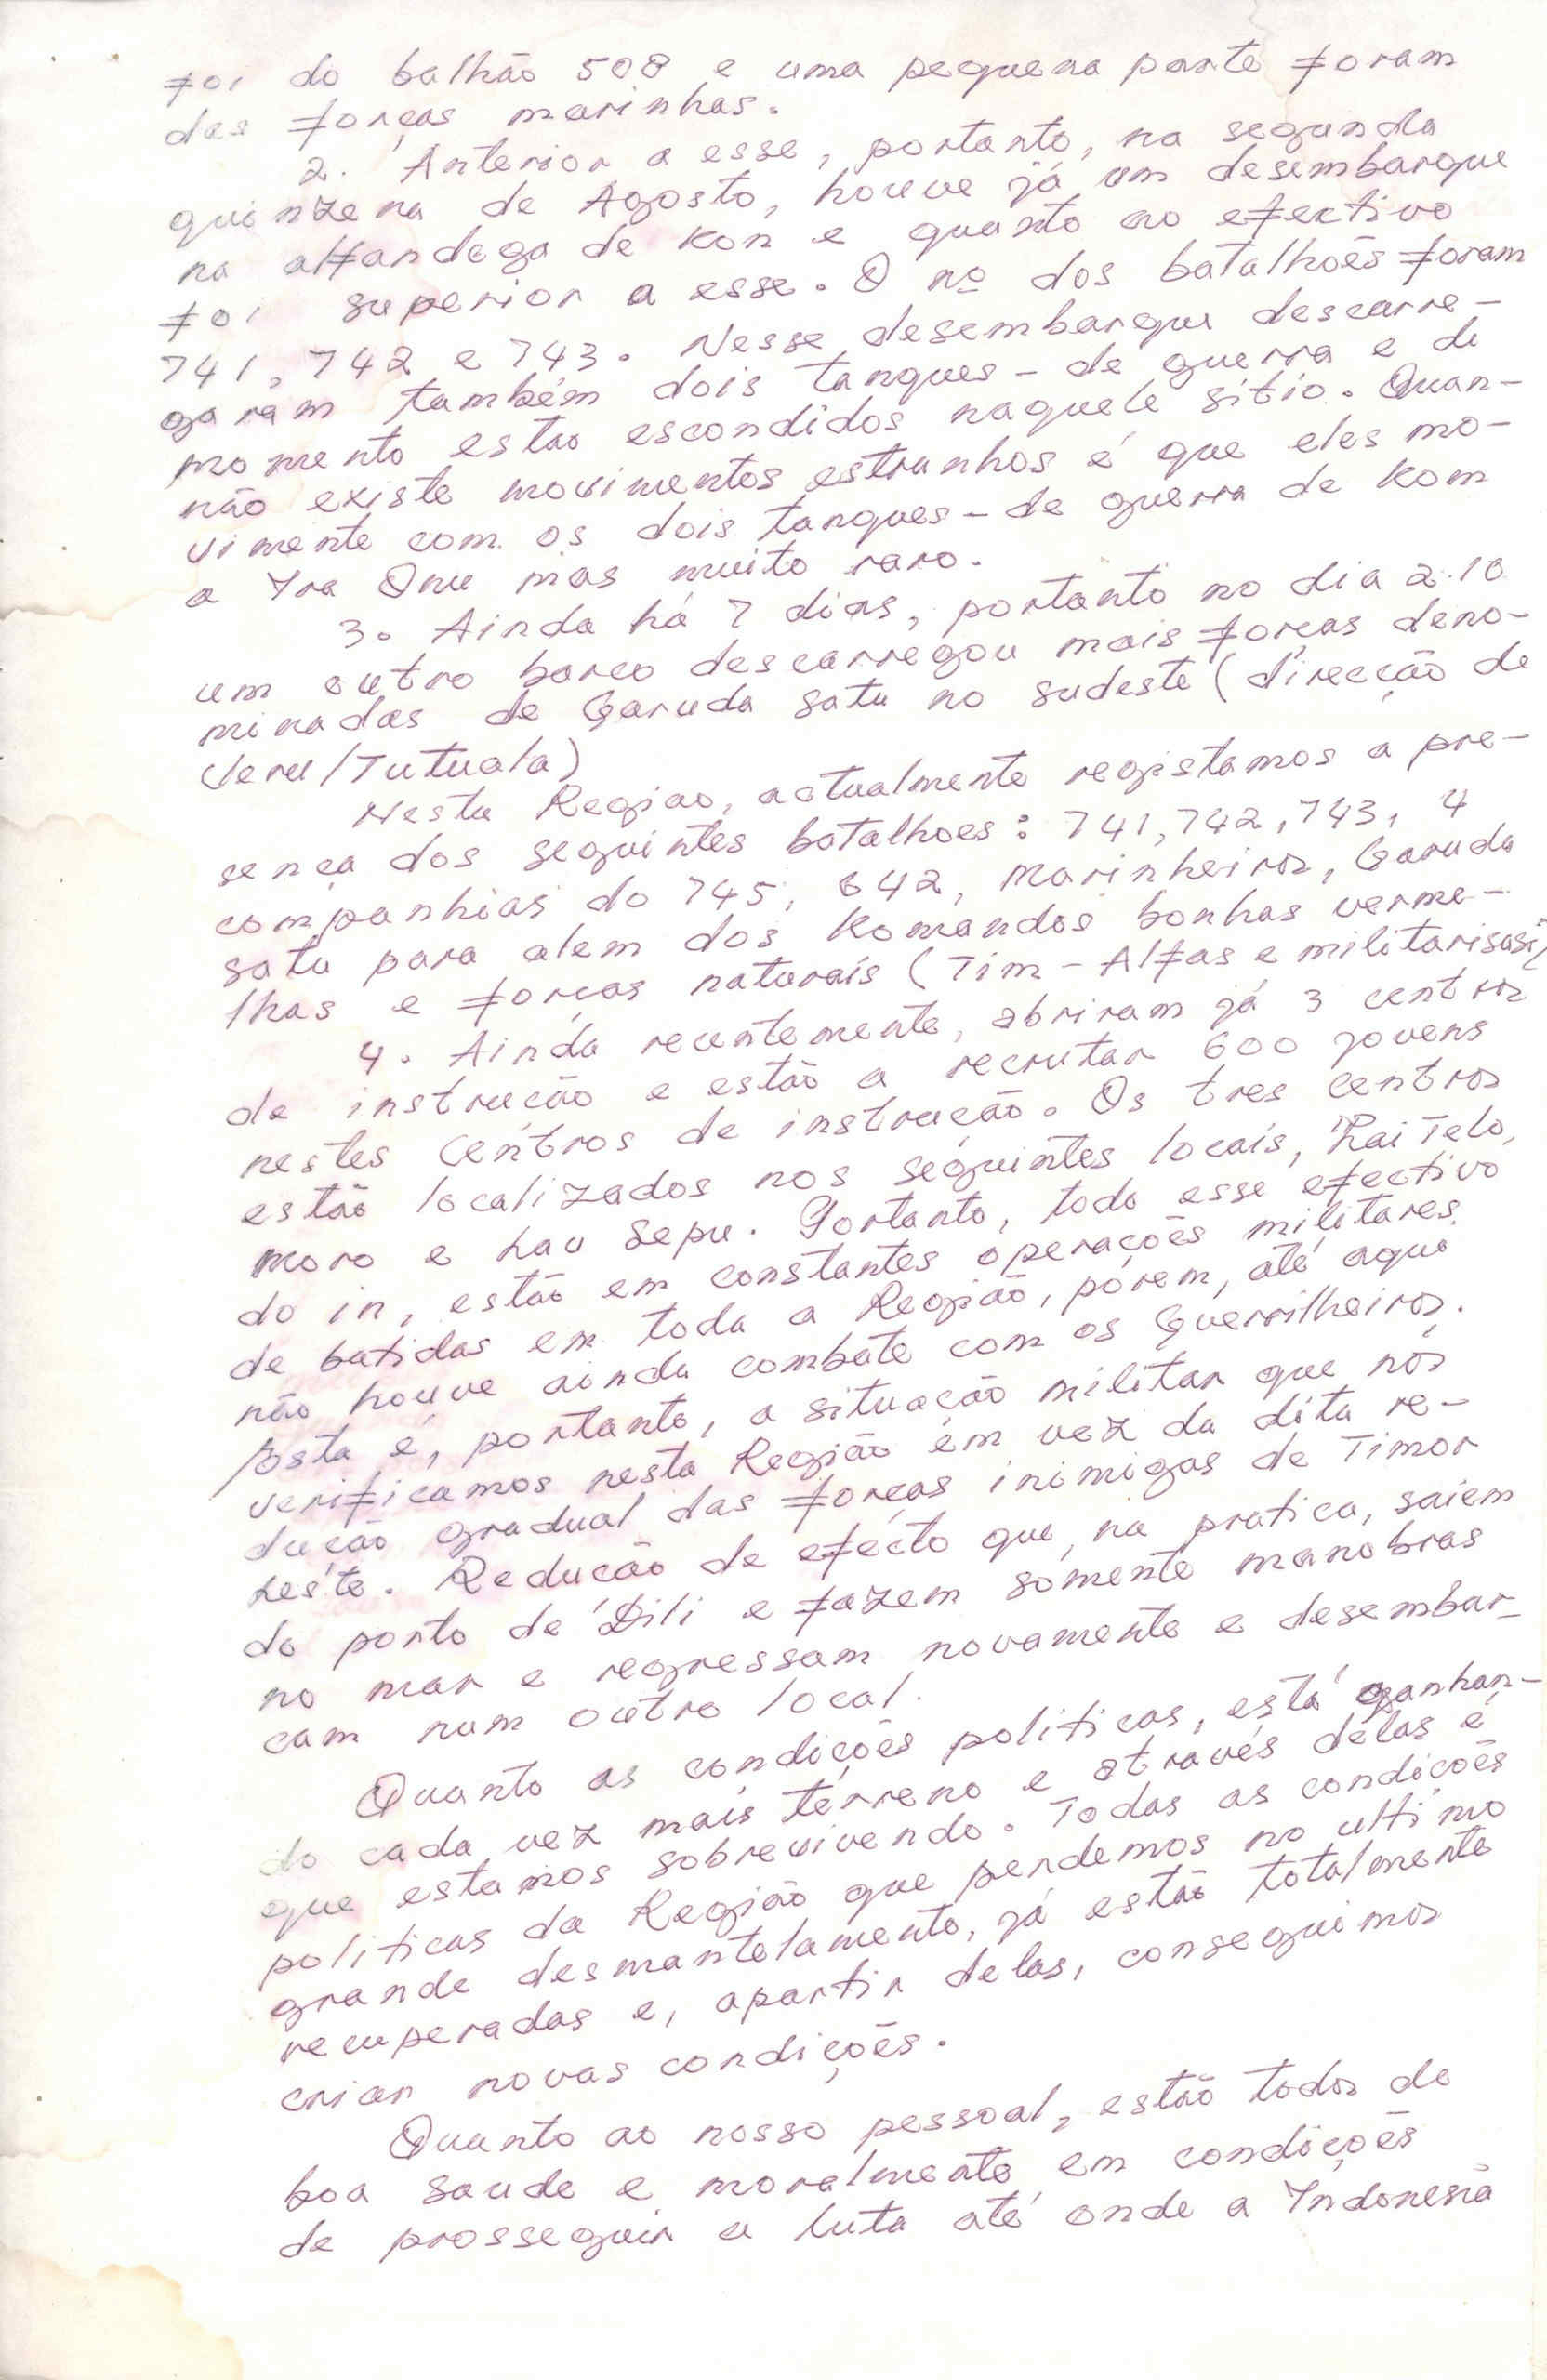 foi do balhão 508 e uma pequena parte foram
das forças marinhas.
2. Anterior a esse, portanto, na segunda
quinzena de Agosto, houve já um desembarque
na alfandega de Kon e quanto ao efectivo
foi superior a esse. O nº dos batalhões foram
741, 742 e 743. Nesse desembarque descarre-
garam também dois tanques-de guerra e de
momento estão escondidos naquele sítio. Quan-
não existe movimentos estranhos é que eles mo-
vimente com os dois tanques-de guerra de Kom
a Ira Onu mas muito raro.
3. Ainda há 7 dias, portanto no dia 2.10
um outro barco descarregou mais forças deno-
minadas de Garuda satu no sudeste (direcção de
Veru/Tutuala)
Nesta Região, actualmente registamos a pre-
sença dos seguintes batalhoes: 741, 742, 743, 4
companhias do 745, 642, Marinheiros, Garuda
satu para alem dos Komandos bonhas verme-
lhas e forças naturais (Tim-Alfas e militarisasi)
4. Ainda recentemente, abriram já 3 centros
de instrução e estão a recrutar 600 jovens
nestes Centros de instrução. Os tres Centros
estão localizados nos seguintes locais,
Moro e Lau Sepu. Portanto, todo esse efectivo
do in, estão em constantes operações militares
de batidas em toda a Região, pórem, até aqui
não houve ainda combate com os Guerrilheiros.
Esta é, portanto, a situação militar que nós
verificamos nesta Região em vez da dita re-
dução gradual das forças inimigas de Timor
Leste. Redução de efécto que, na pratica, saiem
do porto de Dili e fazem sómente manobras
no mar e regressam novamente e desembar-
cam num outro local.
Quanto as condições politicas, está ganhan-
do cada vez mais terreno e através delas é
que estamos sobrevivendo. Todas as condições
politicas da Região que perdemos no ultimo
grande desmantelamento, já estão totalmente
recuperadas e, apartir delas, conseguimos
criar novas condições.
Quanto ao nosso pessoal, estão todos de
boa saude e moralmente em condições
de prosseguir a luta até onde a Indonesia